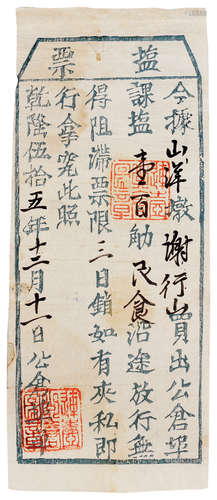 塩票
今據山洋墩謝行山買出公倉埕
課塩壹百觔民食沿途放行無
得阻滯票限三日銷如有夾私即
行拿究此照
乾隆伍拾五年十二月十一日公倉